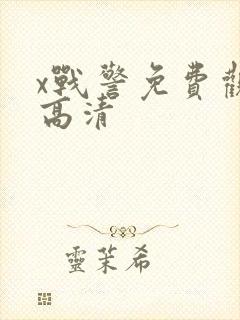 x戰警免費觀
高清
靈茉希